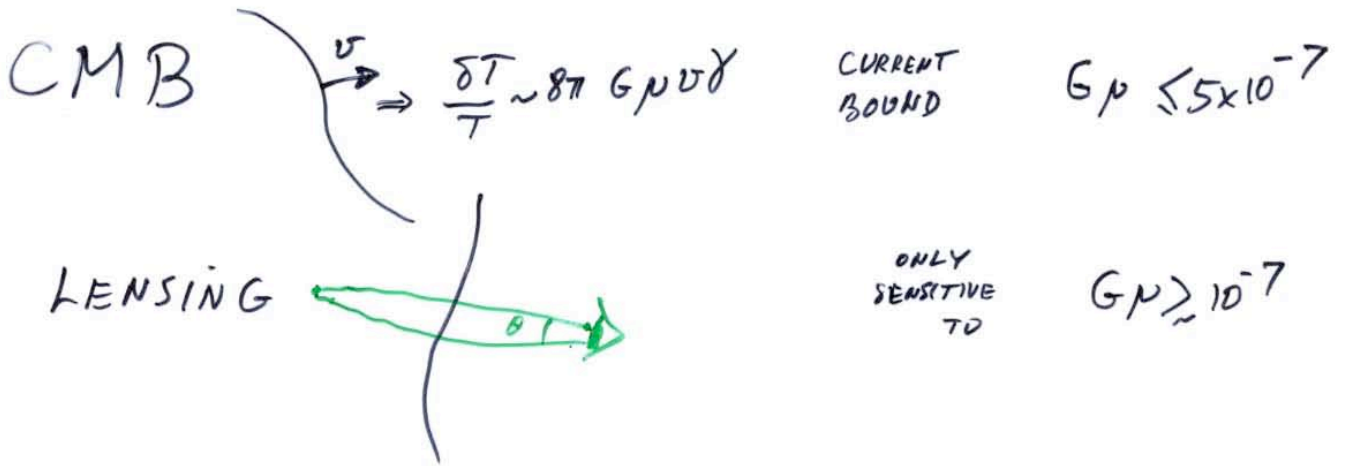 CMB v ⇒ δT/T ~ 8π Gμvγ CURRENT BOUND Gμ ≤ 5x10^-7
LENSING θ ONLY SENSITIVE TO Gμ ≳ 10^-7